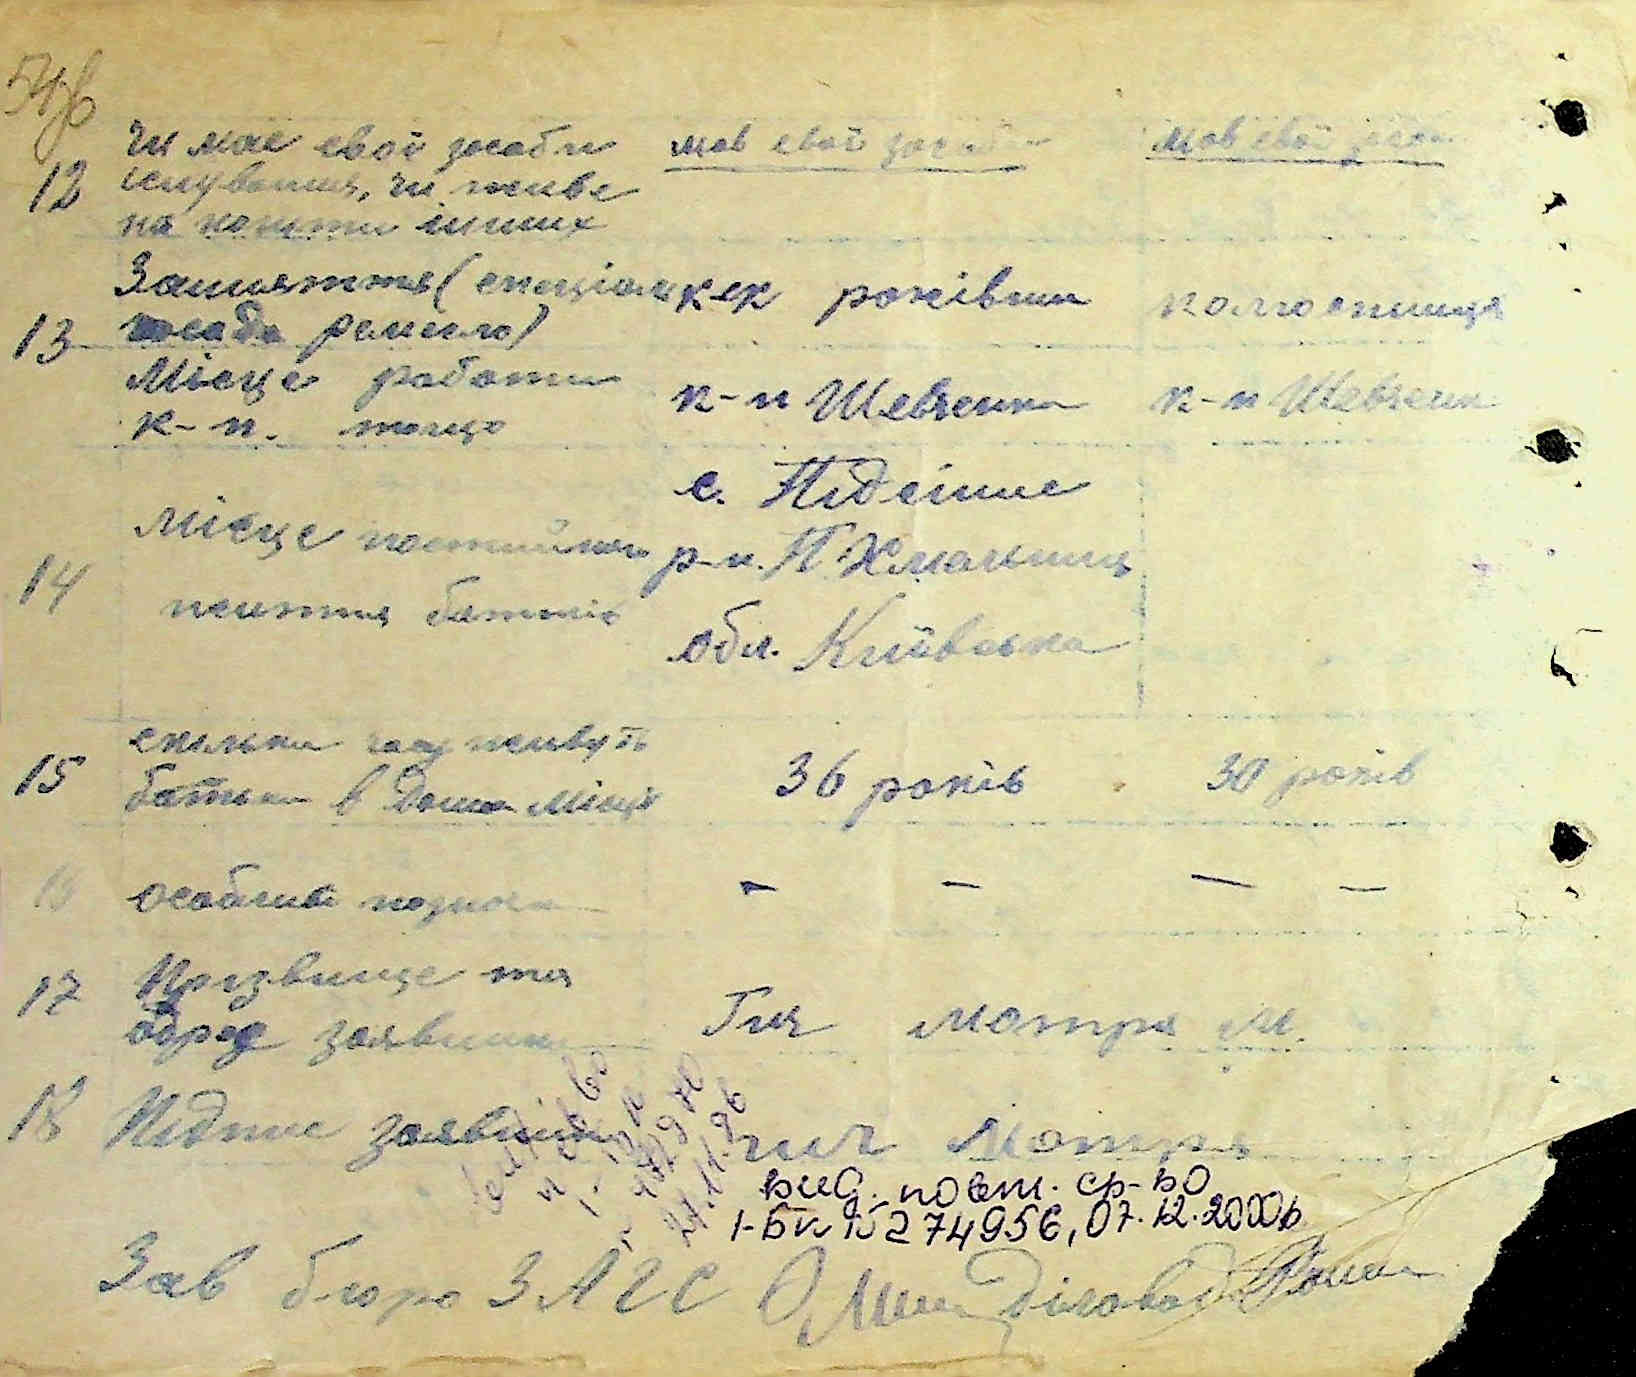 12 Чи має свої засоби мав свої засоби мав свої засоби
існування, чи живе
на кошти інших
Заняття (спеціальн
13 посада ремесло) колгоспниця
Місце работи к-п Шевченка к-п Шевченка
к-п. тощо
с. Підсінне
14 Місце постійного р-н. П. Хмельниц
життя батьків обл. Київська
скільки часу живуть
15 батьки в дан місці 36 років 30 років
16 особливі познач — — — —
17 Прізвище та
адрес заявника Гич Мотря М.
18 Підпис заявника гич Мотря
24.11.96
вид. повт. св-во
I-БК № 274956, 07.12.2000р.
Зав бюро ЗАГС Діловод